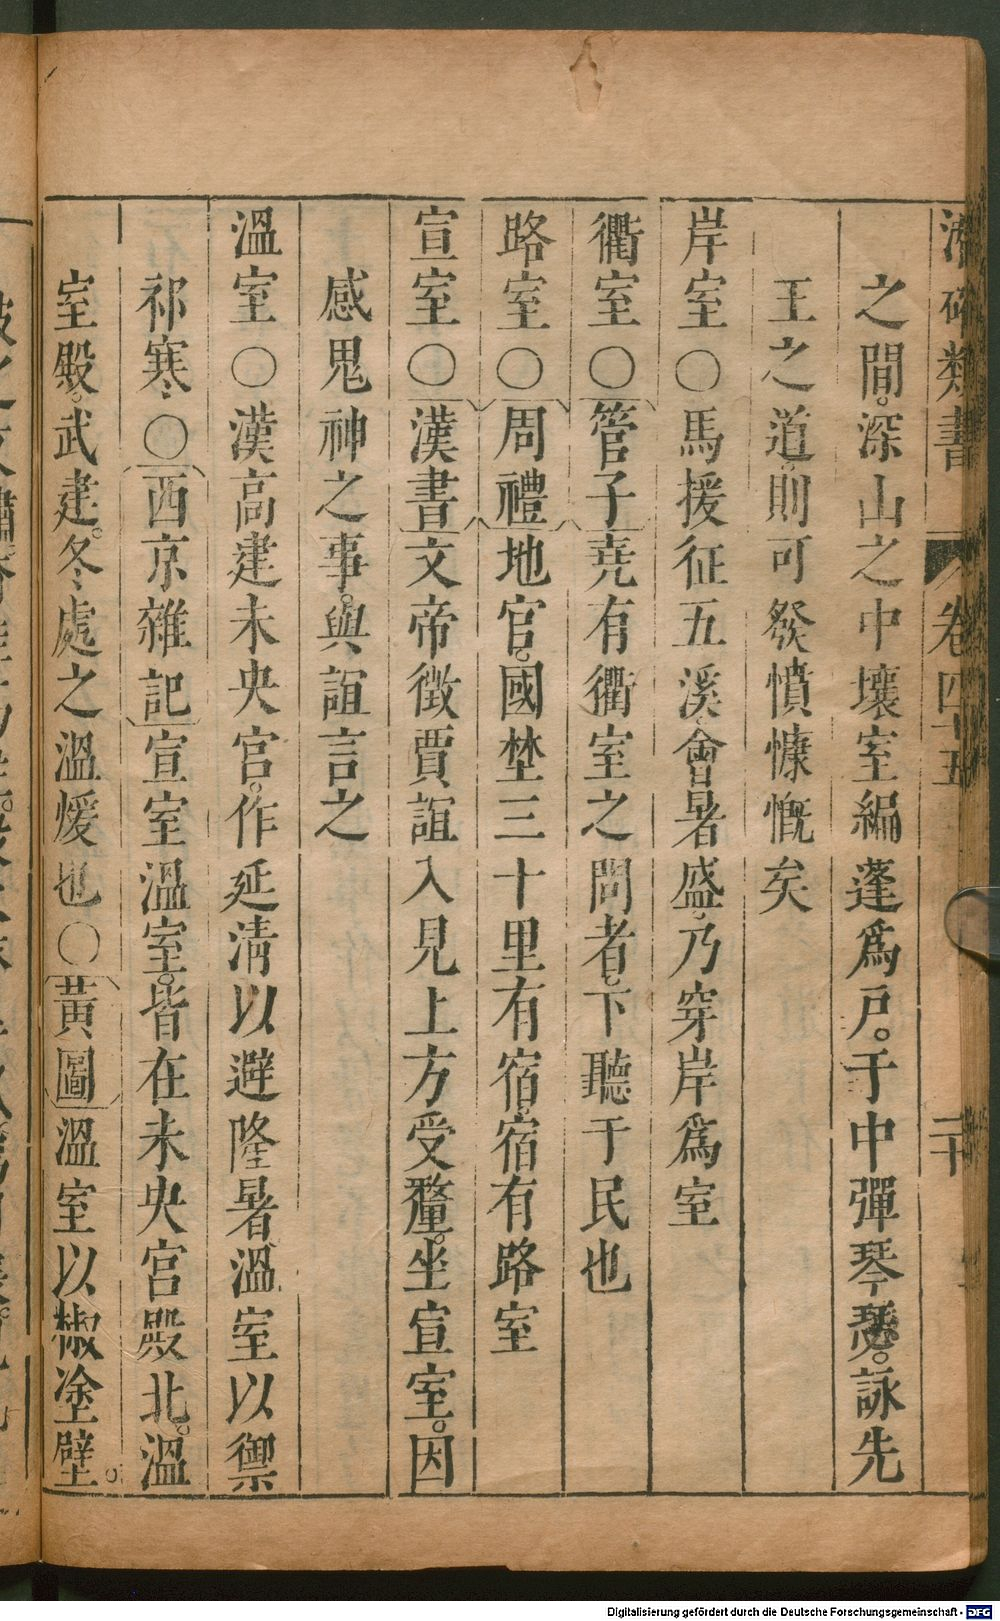 類書 卷四十五 二十
之間。深山之中壤室編蓬爲戸。于中彈琴瑟。詠先
王之道。則可發憤慷慨矣
岸室〇馬援征五溪。會暑盛。乃穿岸爲室
衢室〇管子堯有衢室之問者。下聽于民也
路室〇周禮地官。國埜三十里有宿。宿有路室
宣室〇漢書文帝徴賈誼入見上方受釐。坐宣室。因
感鬼神之事。與誼言之
溫室〇漢高建未央宮。作延清以避隆暑。溫室以禦
祁寒、〇西京雜記宣室溫室。皆在未央宮殿北。溫
室殿。武建。冬處之溫煖也〇黃圖溫室以椒塗壁。
Digitalisierung gefördert durch die Deutsche Forschungsgemeinschaft - DFG